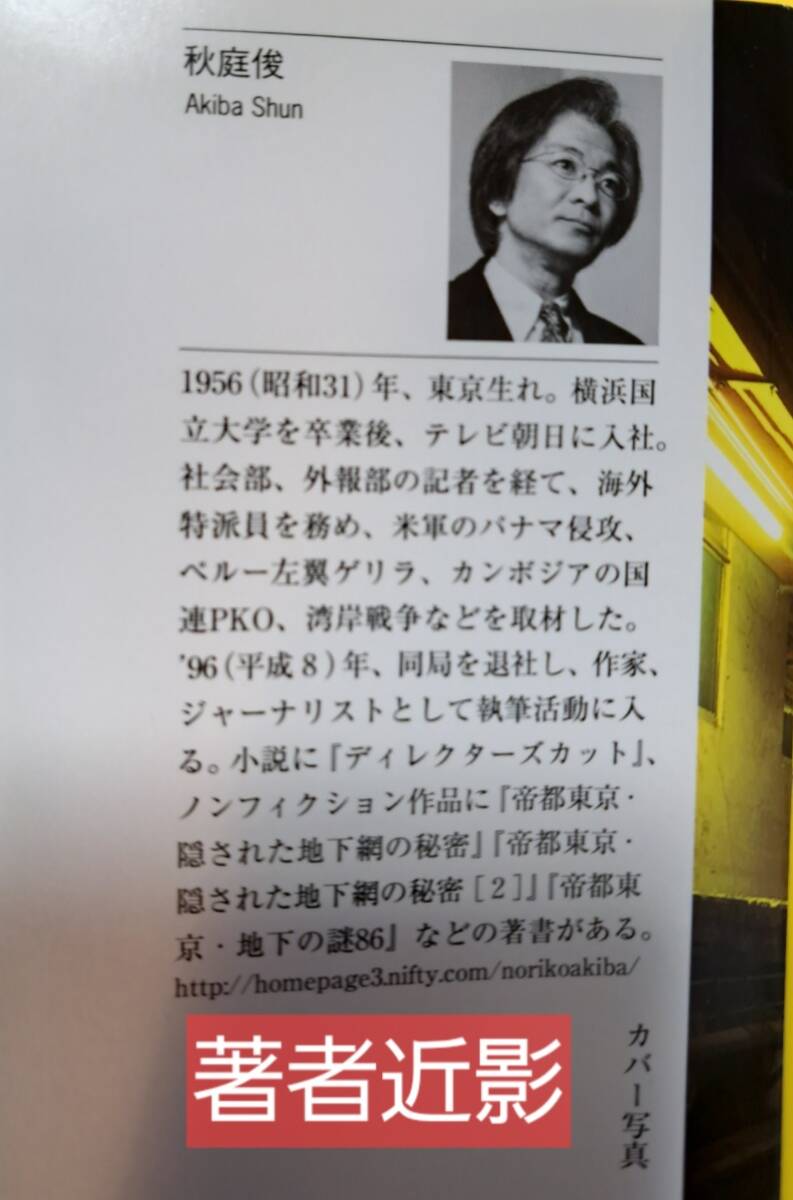 秋庭俊
Akiba Shun
1956(昭和31)年、東京生れ。横浜国
立大学を卒業後、テレビ朝日に入社。
社会部、外報部の記者を経て、海外
特派員を務め、米軍のパナマ侵攻、
ペルー左翼ゲリラ、カンボジアの国
連PKO、湾岸戦争などを取材した。
'96(平成8)年、同局を退社し、作家、
ジャーナリストとして執筆活動に入
る。小説に『ディレクターズカット』、
ノンフィクション作品に『帝都東京・
隠された地下網の秘密』『帝都東京・
隠された地下網の秘密[2]』『帝都東
京・地下の謎86』などの著書がある。
http://homepage3.nifty.com/norikoakiba/
著者近影
カバー写真